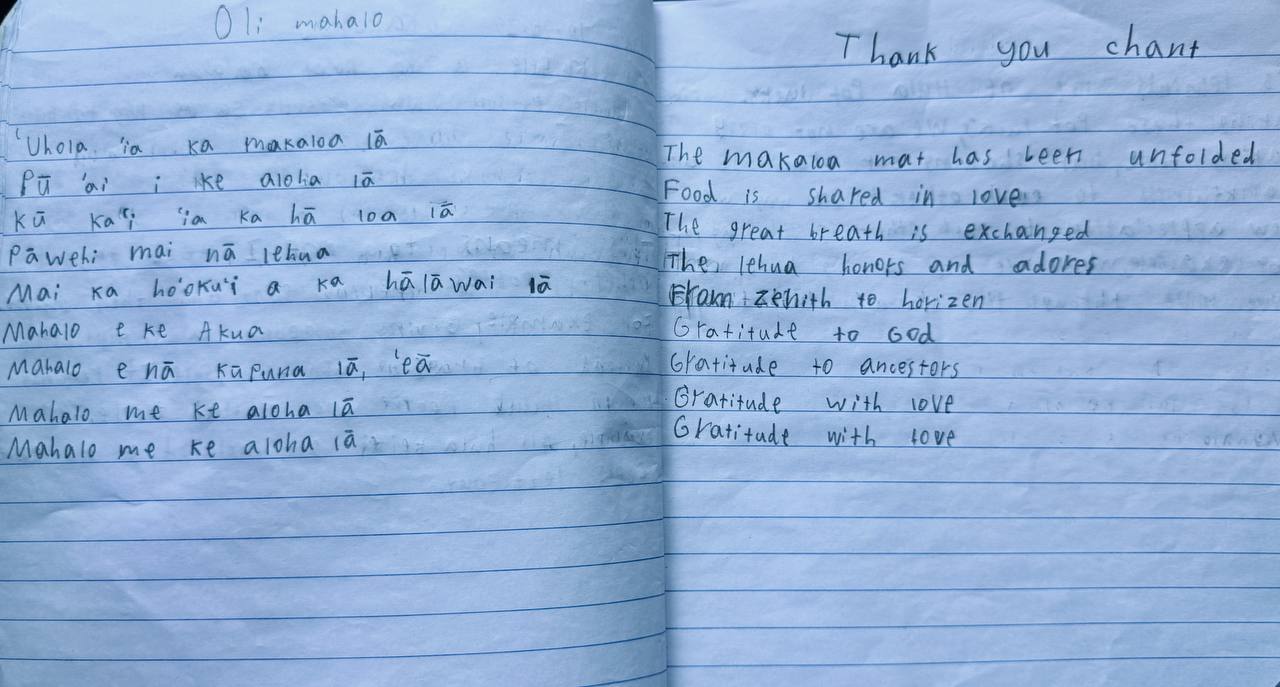 Oli mahalo
'Uhola 'ia ka makaloa lā
Pū 'ai i ke aloha lā
Kū ka'i 'ia ka hā loa lā
Pāwehi mai nā lehua
Mai ka ho'oku'i a ka hālāwai lā
Mahalo e ke Akua
Mahalo e nā kūpuna lā, 'eā
Mahalo me ke aloha lā
Mahalo me ke aloha lā
Thank you chant
The makaloa mat has been unfolded
Food is shared in love
The great breath is exchanged
The lehua honors and adores
From zenith to horizen
Gratitude to God
Gratitude to ancestors
Gratitude with love
Gratitude with love